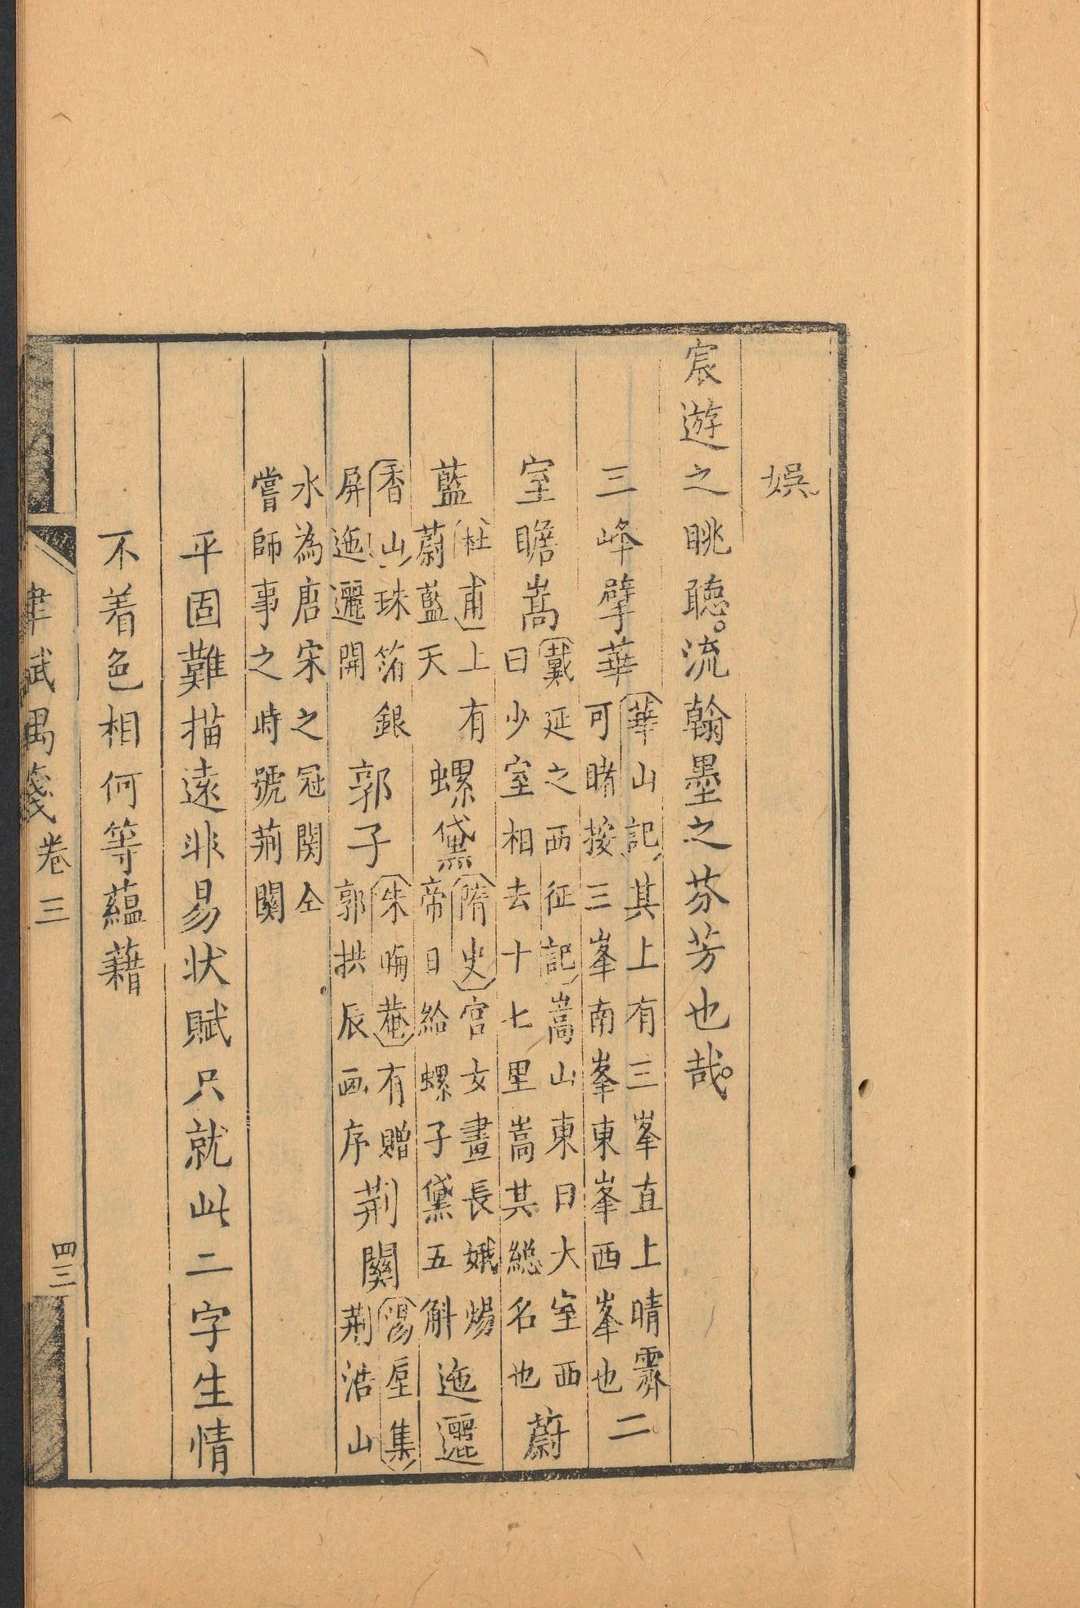 娯
宸遊之眺聽。流翰墨之芬芳也哉。
三峰擘華華山記其上有三峯直上晴霽可睹按三峯南峯東峯西峯也二
室瞻嵩戴延之西征記嵩山東曰大室西曰少室相去十七里嵩其總名也蔚
藍杜甫上有蔚藍天螺黛隋史宮女畫長娥煬帝日給螺子黛五斛迤邐
香山珠箔銀屏迤邐開郭子朱晦菴有贈郭拱辰画序荆關湯垕集荆浩山
水為唐宋之冠関仝嘗師事之時號荊關
平固難描遠非易状賦只就此二字生情
不着色相何等蘊藉
賦禺箋 卷三 四三